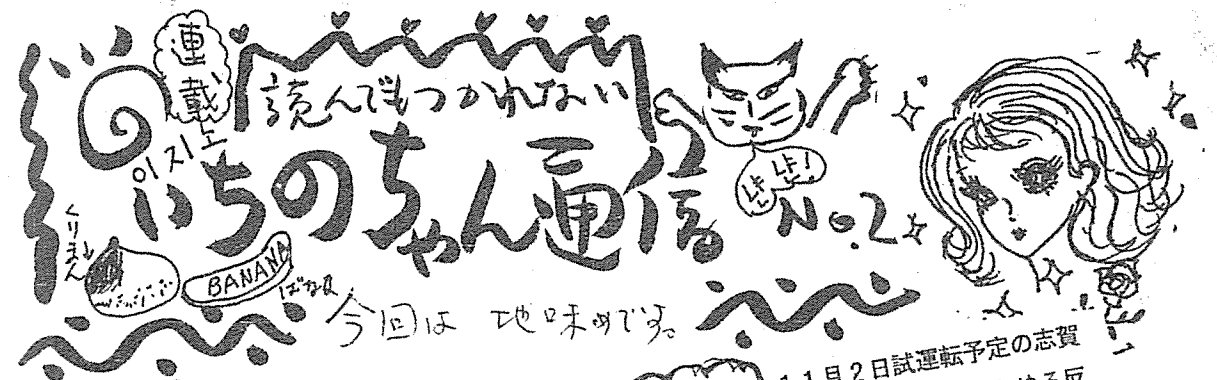 連載
読んでもつかれない
いちのちゃん通信
No.2
くりまん
BANANA
ばなな
今回は 地味めです。
11月2日試運転予定の志賀